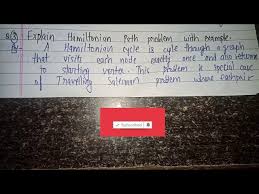 Q(3) Explain Hamiltonian Path problem with example.
A- A Hamiltonian cycle is cycle through a graph
that visits each node exactly once and also returns
to starting vertex. This problem is special case
of Travelling Salesman problem where each pair
Subscribed